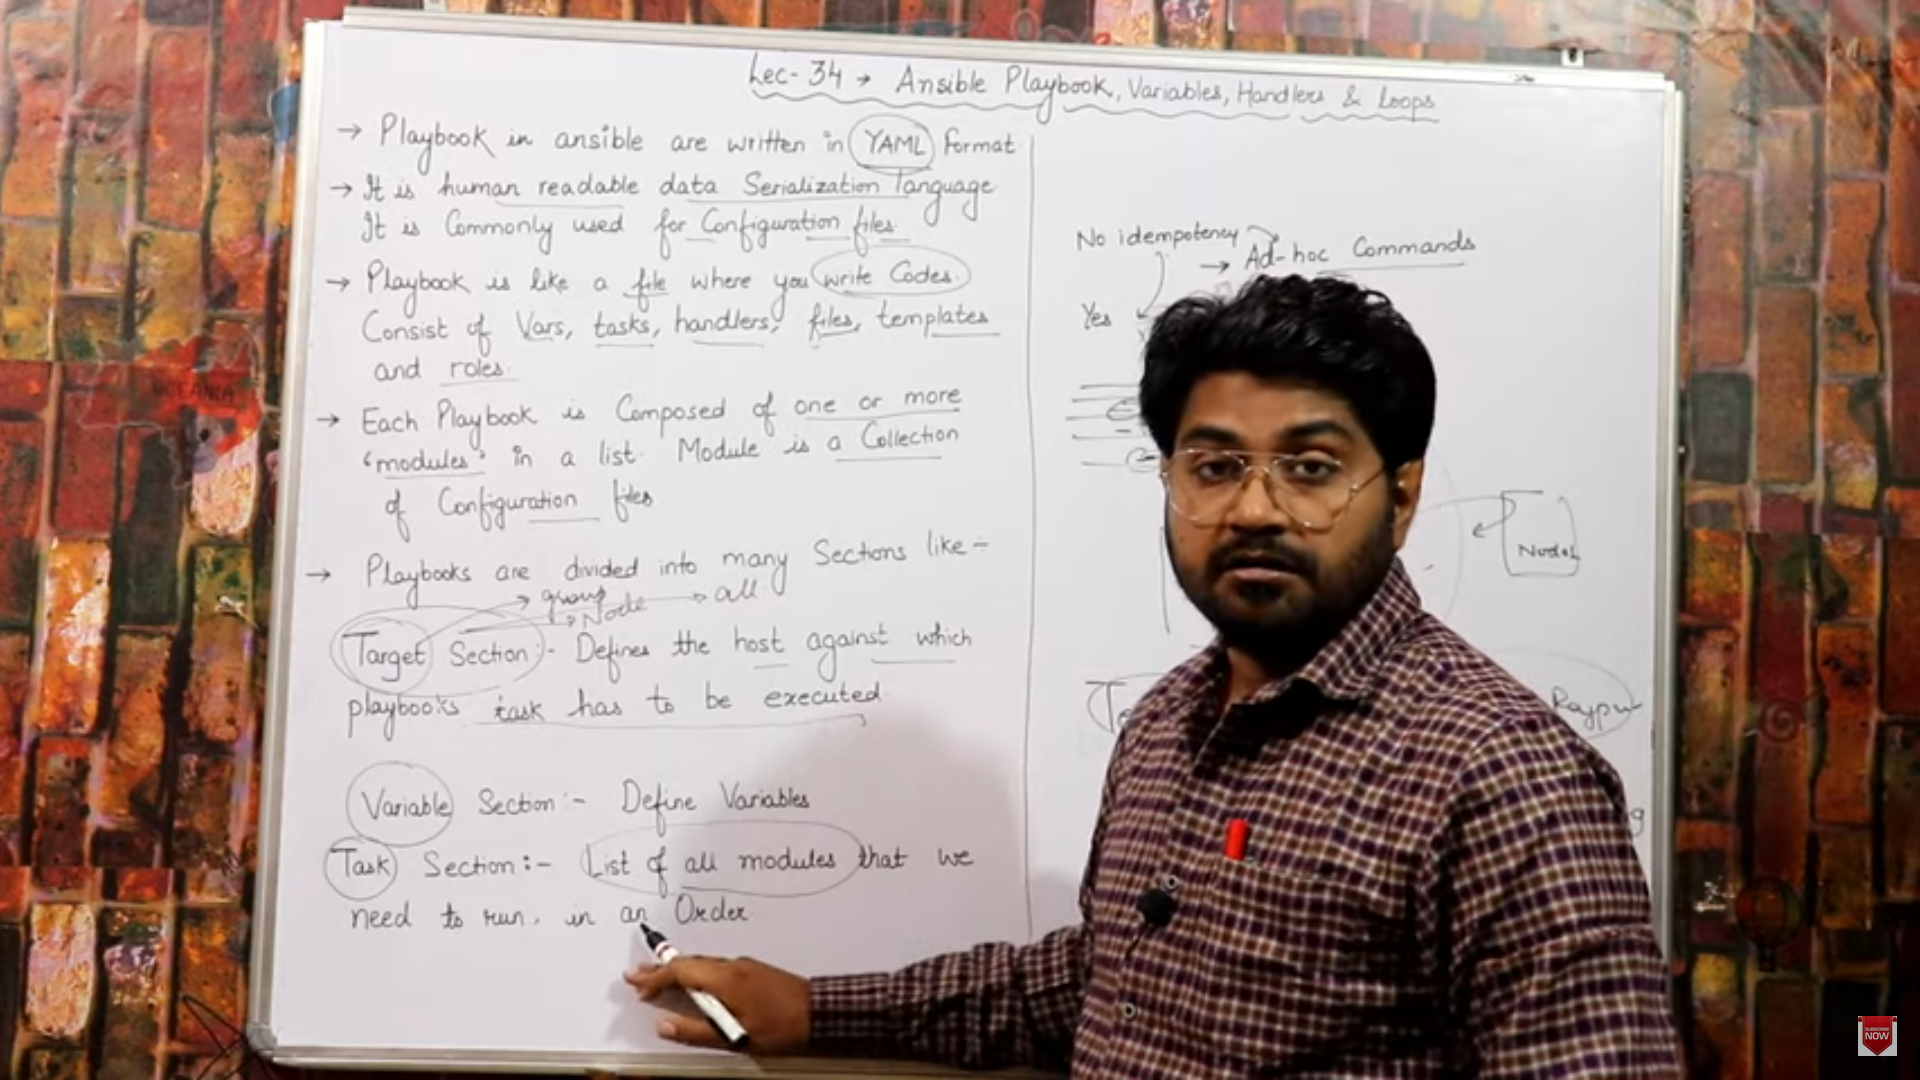 Lec-34 → Ansible Playbook, Variables, Handlers & Loops
→ Playbook in ansible are written in YAML format
→ It is human readable data Serialization language
It is Commonly used for Configuration files.
→ Playbook is like a file where you write Codes.
Consist of Vars, tasks, handlers, files, templates
and roles.
→ Each Playbook is Composed of one or more
'modules' in a list. Module is a Collection
of Configuration files
→ Playbooks are divided into many Sections like :-
→ group
→ Node → all
Target Section :- Defines the host against which
playbooks task has to be executed.
Variable Section :- Define Variables
Task Section :- List of all modules that we
need to run, in an Order
No idempotency
→ Ad-hoc Commands
Yes
OCEANIA
SUBSCRIBE
NOW